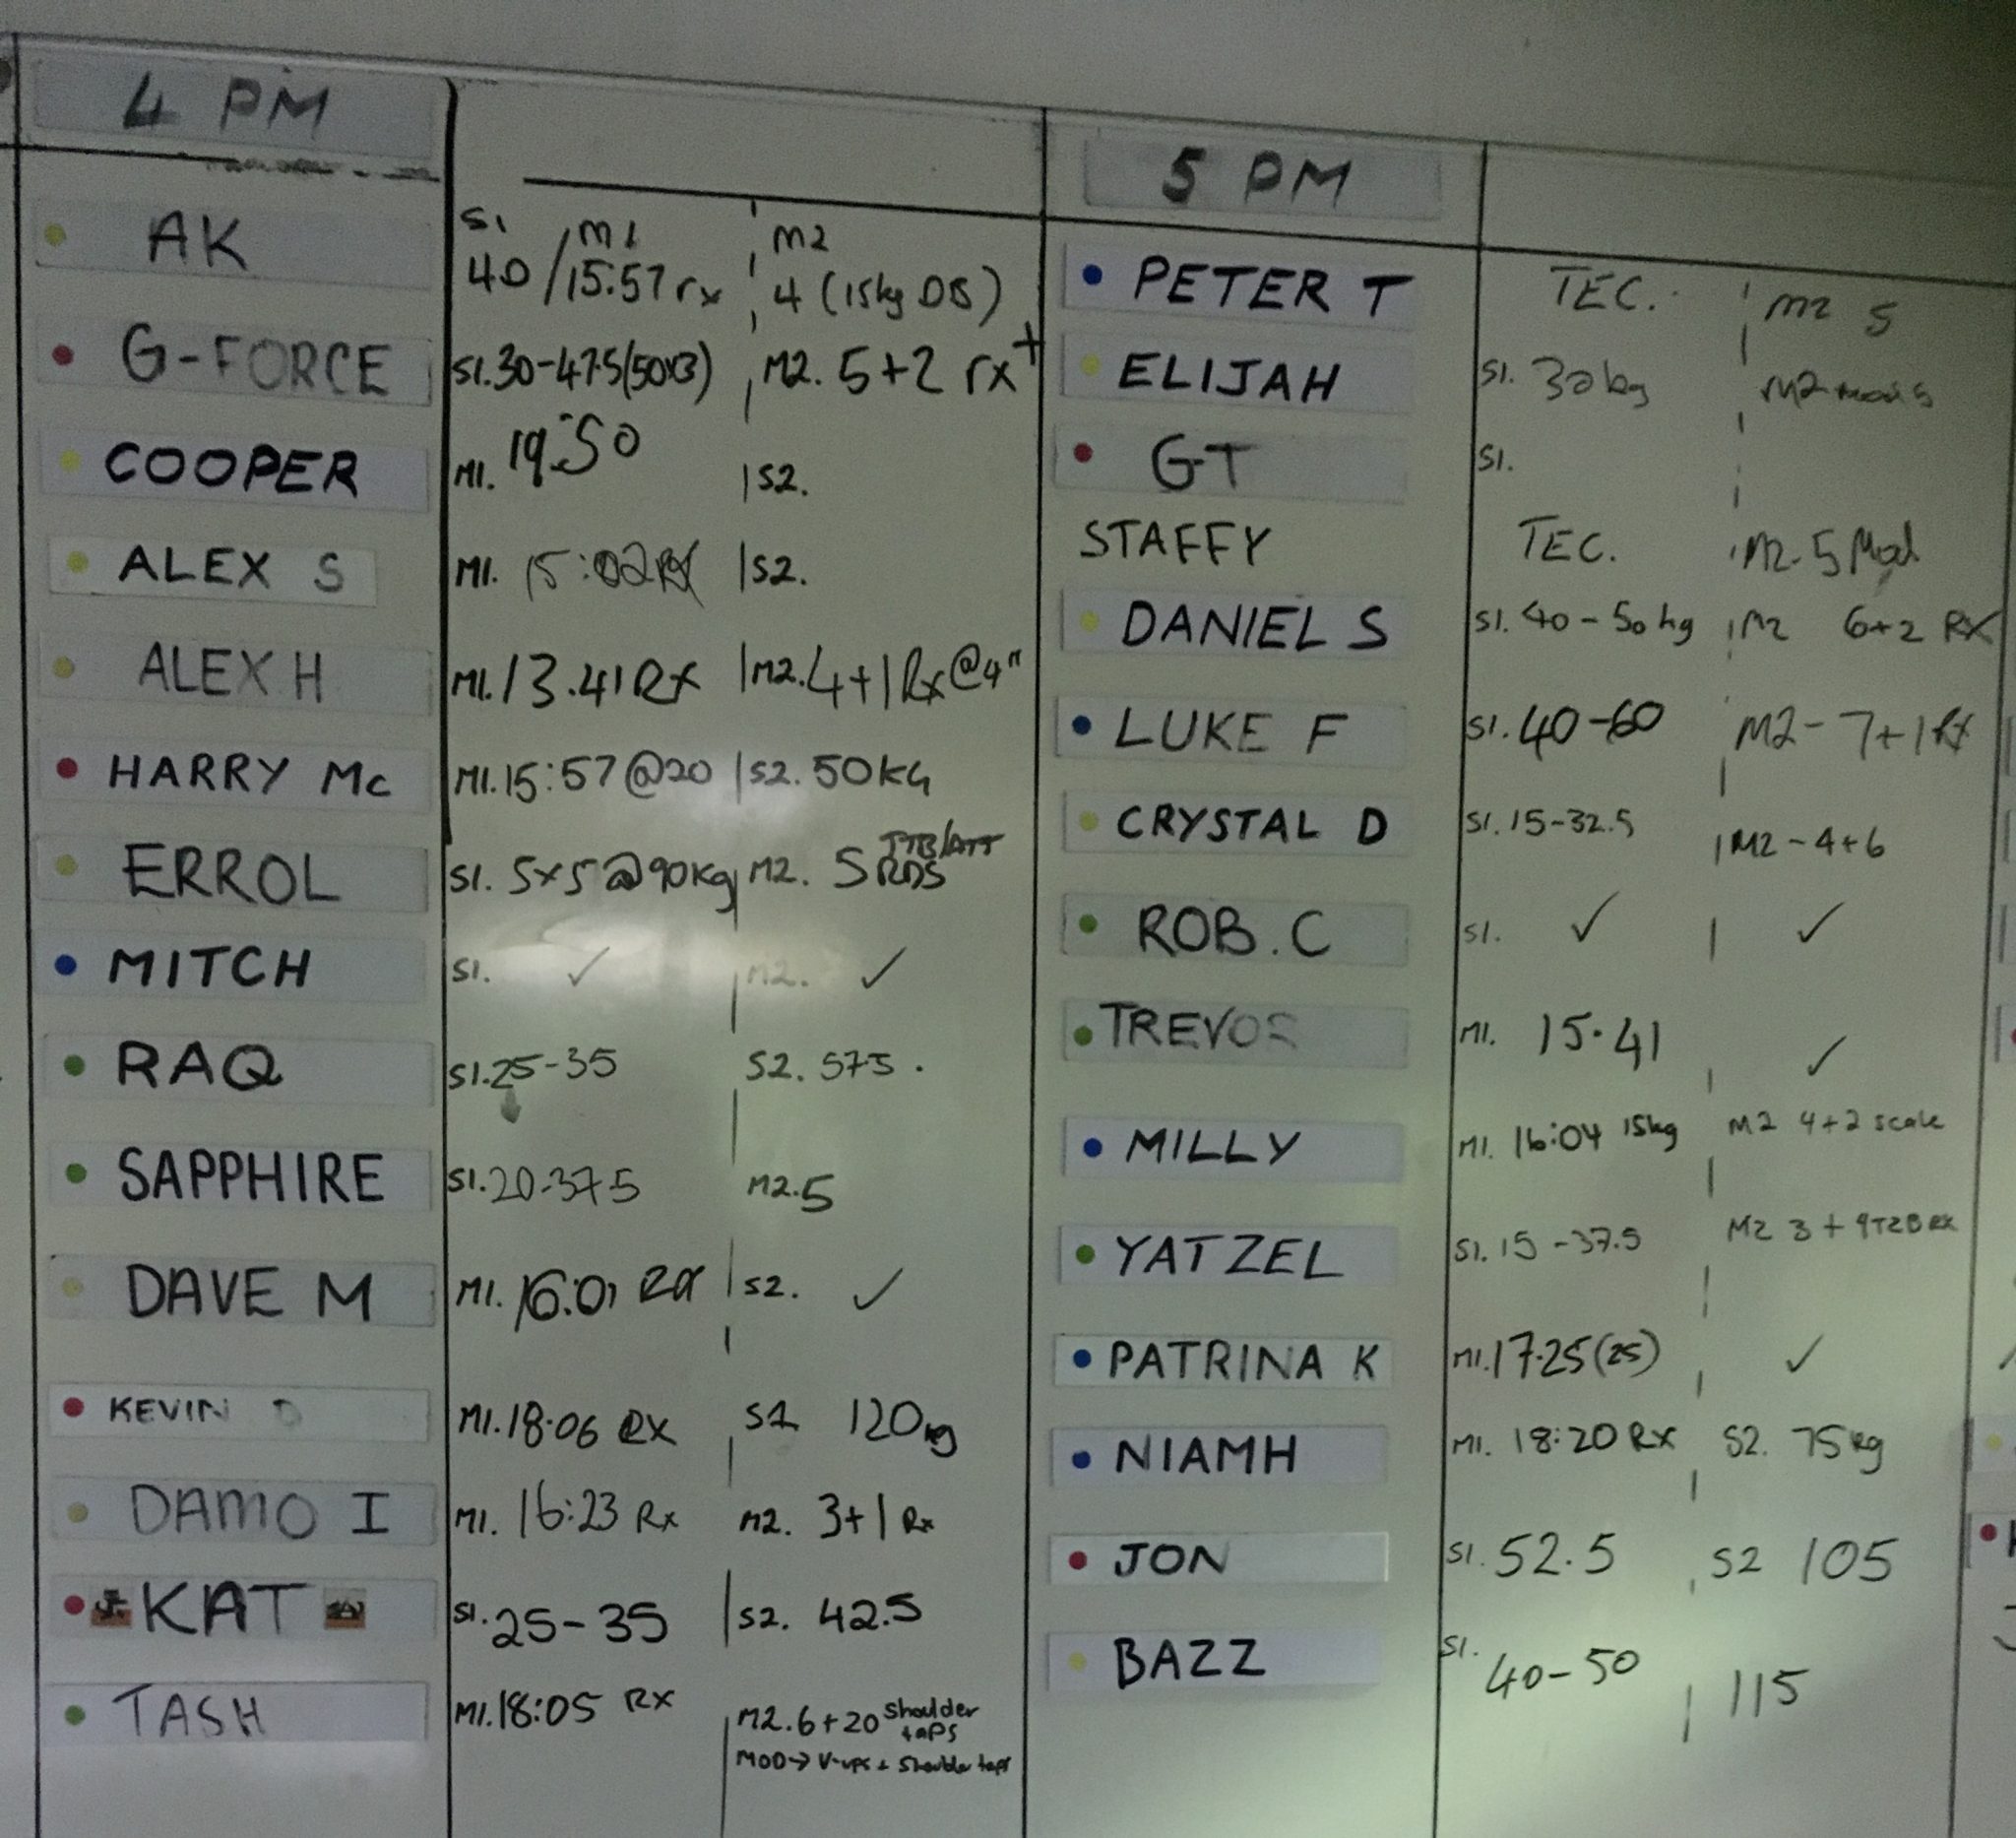 4 PM
AK S1 40 / M1 15:57 rx M2 4 (15kg DB)
G-FORCE S1. 30-47.5 (50x3) M2. 5+2 rx+
COOPER M1. 19:50 S2.
ALEX S M1. 15:02 RX S2.
ALEX H M1. 13.41 Rx M2. 4+1 Rx @4"
HARRY Mc M1. 15:57 @20 S2. 50KG
ERROL S1. 5x5 @90kg M2. 5 RDS TTB/ATT
MITCH S1. ✓ M2. ✓
RAQ S1. 25-35 S2. 57.5.
SAPPHIRE S1. 20-37.5 M2. 5
DAVE M M1. 16:01 RX S2. ✓
KEVIN D M1. 18:06 RX S2 120kg
DAMO I M1. 16:23 Rx M2. 3+1 Rx
KAT S1. 25-35 S2. 42.5
TASH M1. 18:05 RX M2. 6+20 shoulder taps
MOD→ V-ups + Shoulder taps
5 PM
PETER T TEC. M2 5
ELIJAH S1. 30kg M2 5
GT S1.
STAFFY TEC. M2. 5 Mod
DANIEL S S1. 40-50 kg M2 6+2 RX
LUKE F S1. 40-60 M2- 7+1 RX
CRYSTAL D S1. 15-32.5 M2-4+6
ROB.C S1. ✓ ✓
TREVOR M1. 15.41 ✓
MILLY M1. 16:04 15kg M2 4+2 scale
YATZEL S1. 15-37.5 M2 3+9T2B RX
PATRINA K M1. 17.25 (25) ✓
NIAMH M1. 18:20 RX S2. 75kg
JON S1. 52.5 S2 105
BAZZ S1. 40-50 115